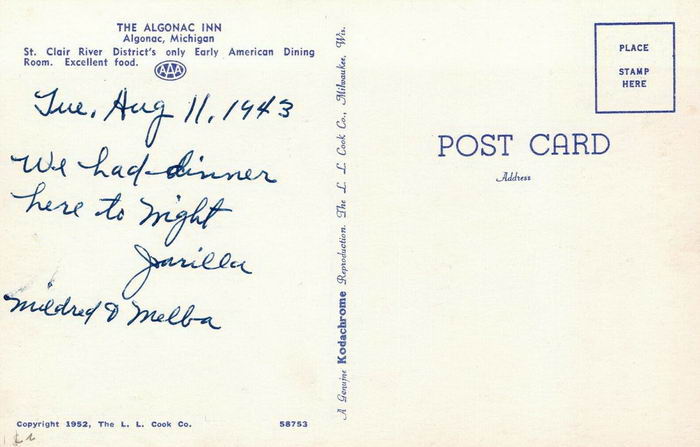 THE ALGONAC INN
Algonac, Michigan
St. Clair River District's only Early American Dining
Room. Excellent food.
AAA
Tue, Aug 11, 1943
We had dinner
here to night
Mildred & Melba
Copyright 1952, The L. L. Cook Co.
58753
A Genuine Kodachrome Reproduction. The L. L. Cook Co., Milwaukee, Wis.
PLACE
STAMP
HERE
POST CARD
Address